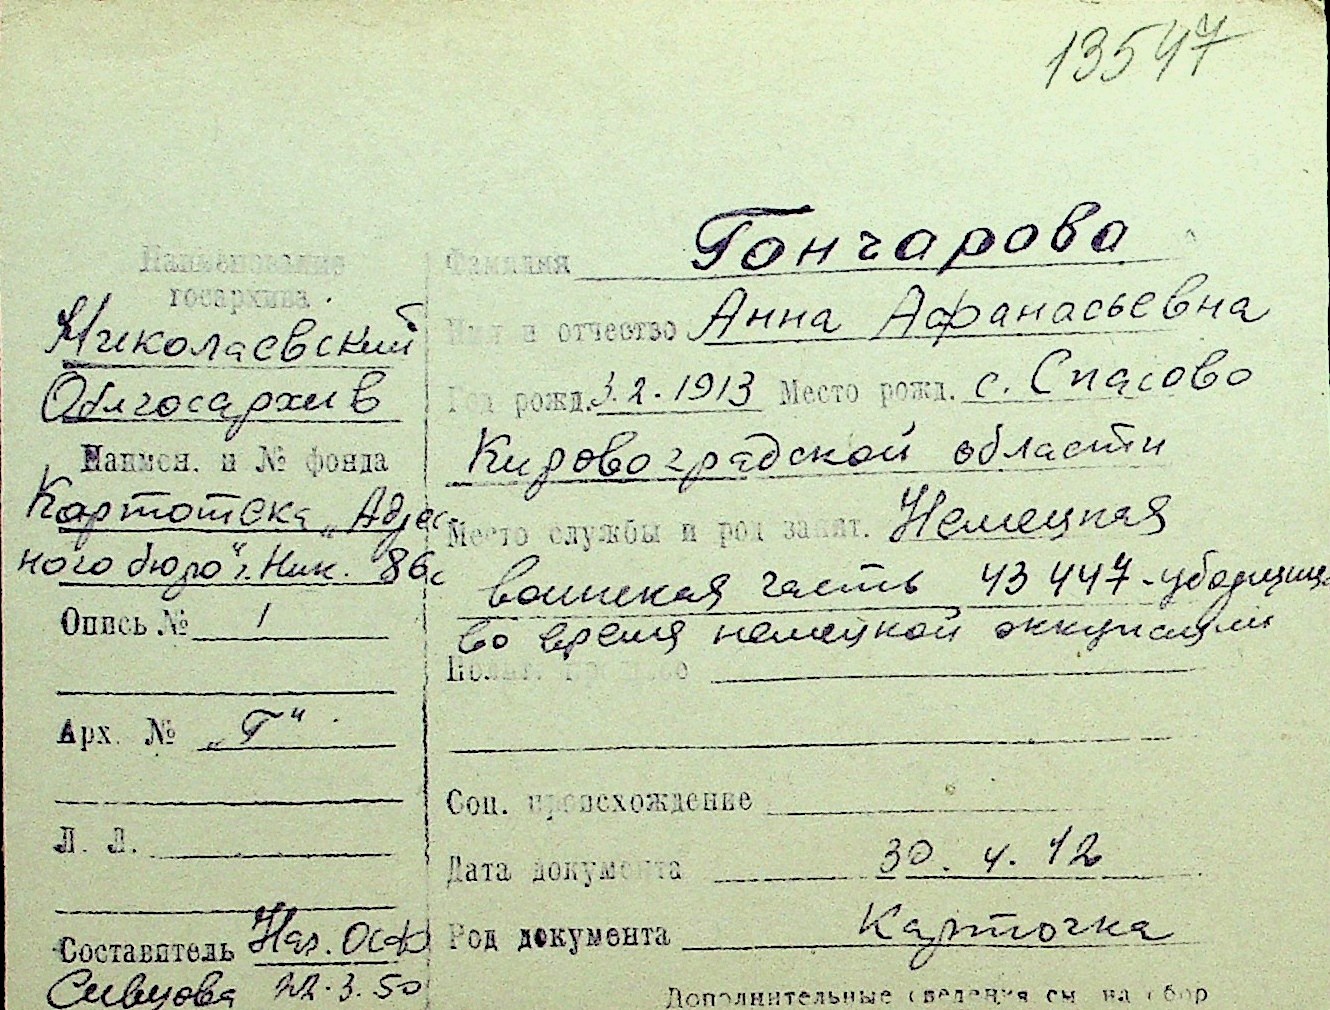 13547
Наименование
госархива
Николаевский
Облгосархив
Наимен. и № фонда
Картотека „Адрес-
ного бюро" г. Ник. 86с
Опись № 1
Арх. № „Г"
Л. Л.
Составитель Нач. ОСФ
Сивцова 22.3.50
Фамилия Гончарова
Имя и отчество Анна Афанасьевна
Год рожд. 3.2.1913 Место рожд. с. Спасово
Кировоградской области
Место службы и род занят. Немецкая
воинская часть 43447-уборщица
во время немецкой оккупации
Полит. прошлое
Соц. происхождение
Дата документа 30.4.42
Род документа Карточка
Дополнительные сведения см. на обор